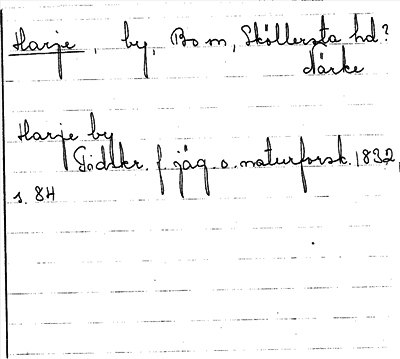 Harje, by, Bo sn, Sköllersta hd?
Närke
Harje by
Tidskr. f. jäg. o. naturforsk. 1832,
s. 84